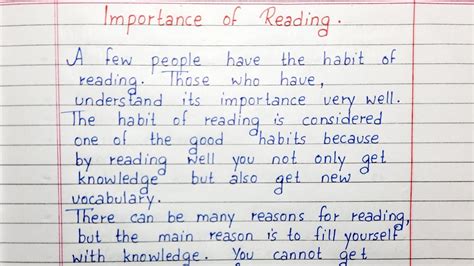 Importance of Reading.
A few people have the habit of
reading. Those who have,
understand its importance very well.
The habit of reading is considered
one of the good habits because
by reading well you not only get
knowledge but also get new
vocabulary.
There can be many reasons for reading,
but the main reason is to fill yourself
with knowledge. You cannot get